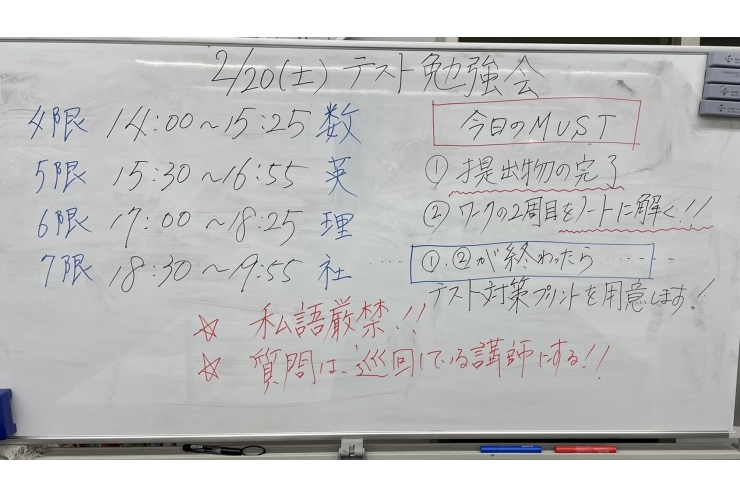 2/20(土) テスト勉強会
4限 14:00~15:25 数
5限 15:30~16:55 英
6限 17:00~18:25 理
7限 18:30~19:55 社
今日のMUST
① 提出物の完了
② ワークの2周目をノートに解く!!
①.②が終わったら
テスト対策プリントを用意します!
☆ 私語厳禁!!
☆ 質問は、巡回している講師にする!!